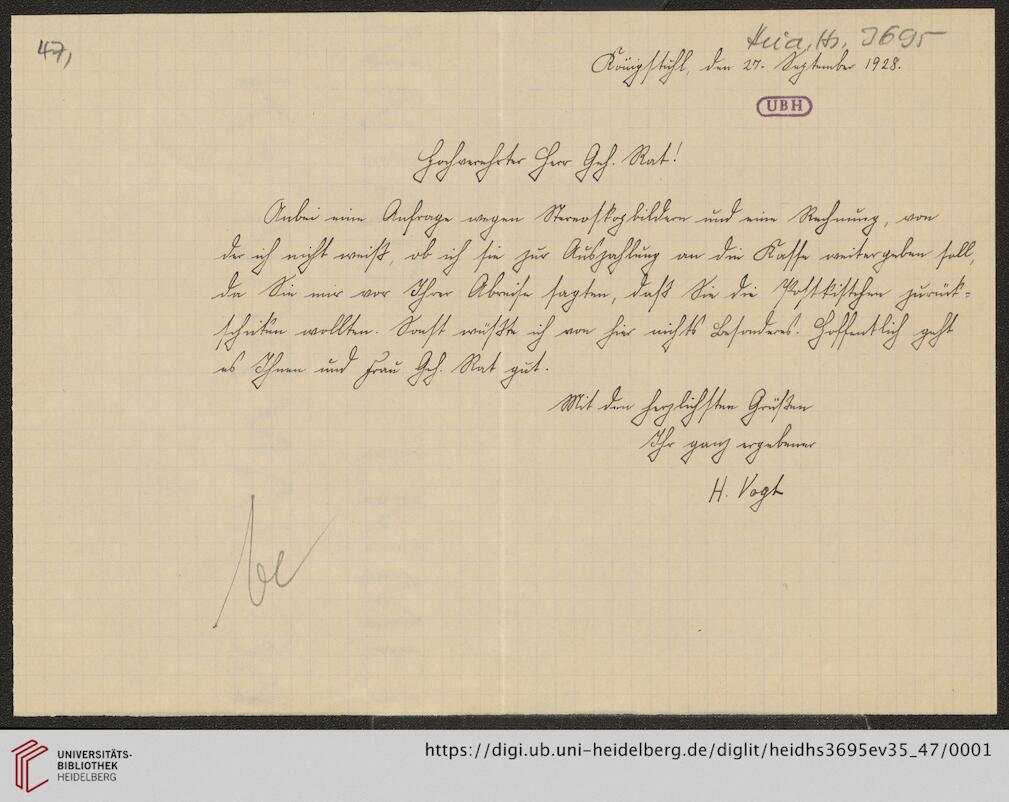 47,
Heid. Hs. 3695
Königstuhl, den 27. September 1928.
UBH
Hochverehrter Herr Geh. Rat!
Anbei eine Anfrage wegen Stereoskopbildern und eine Rechnung, von
der ich nicht weiß, ob ich sie zur Auszahlung an die Kasse weitergeben soll,
da Sie mir vor Ihrer Abreise sagten, daß Sie die Postkistchen zurück-
schicken wollten. Sonst wüßte ich von hier nichts Besonderes. Hoffentlich geht
es Ihnen und Frau Geh. Rat gut.
Mit den herzlichsten Grüßen
Ihr ganz ergebener
H. Vogt
UNIVERSITÄTS-
BIBLIOTHEK
HEIDELBERG
https://digi.ub.uni-heidelberg.de/diglit/heidhs3695ev35_47/0001